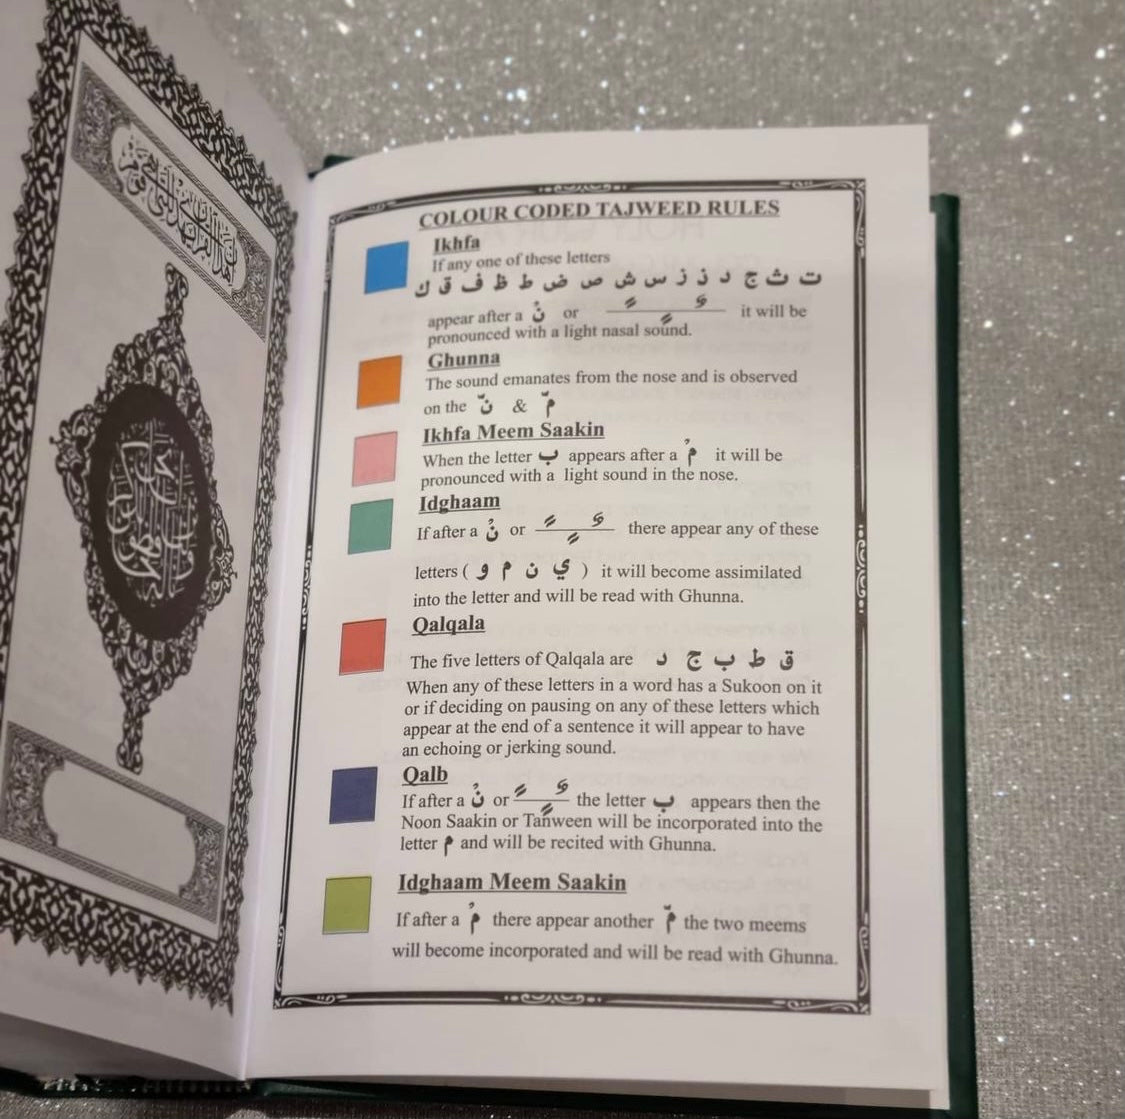 COLOUR CODED TAJWEED RULES
Ikhfa
If any one of these letters
ت ث ج د ذ ز س ش ص ض ط ظ ف ق ك
appear after a نْ or ـًـٍـٌ it will be
pronounced with a light nasal sound.
Ghunna
The sound emanates from the nose and is observed
on the نّ & مّ
Ikhfa Meem Saakin
When the letter ب appears after a مْ it will be
pronounced with a light sound in the nose.
Idghaam
If after a نْ or ـًـٍـٌ there appear any of these
letters ( ي ن م و ) it will become assimilated
into the letter and will be read with Ghunna.
Qalqala
The five letters of Qalqala are ق ط ب ج د
When any of these letters in a word has a Sukoon on it
or if deciding on pausing on any of these letters which
appear at the end of a sentence it will appear to have
an echoing or jerking sound.
Qalb
If after a نْ or ـًـٍـٌ the letter ب appears then the
Noon Saakin or Tanween will be incorporated into the
letter م and will be recited with Ghunna.
Idghaam Meem Saakin
If after a مْ there appear another مّ the two meems
will become incorporated and will be read with Ghunna.